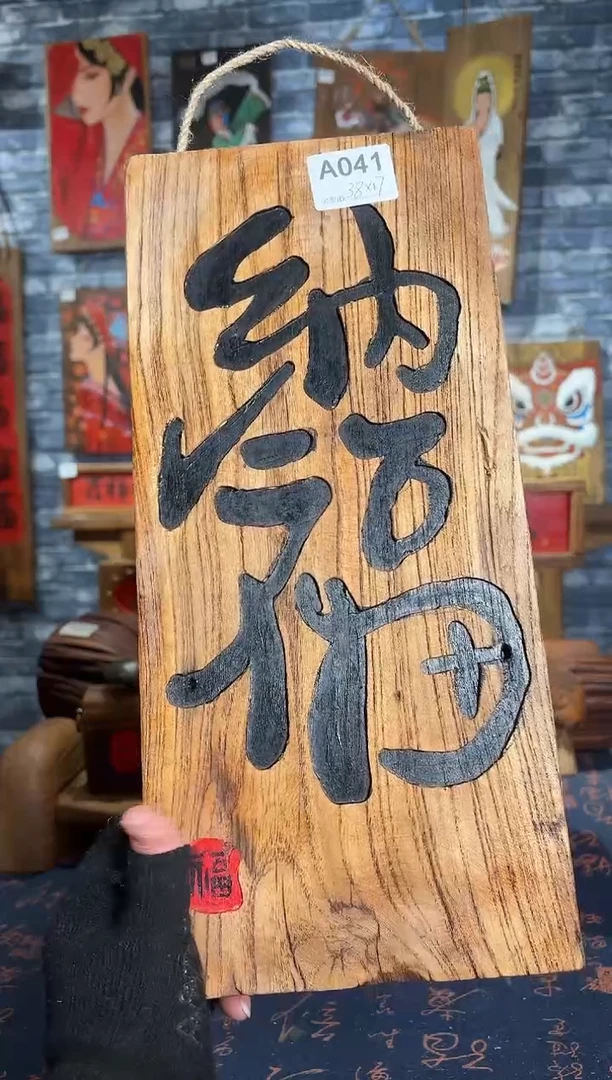 A041
38×17
纳福
福